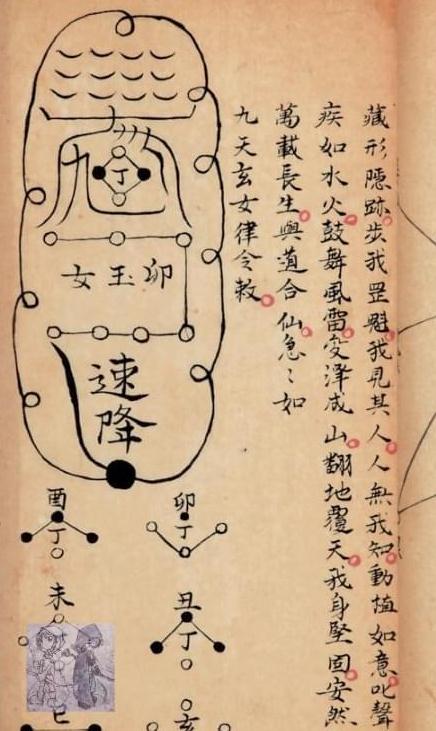 藏形隱跡步我罡魁我見其人人無我知動植如意叱聲
疾如水火鼓舞風雷変澤成山翻地覆天我身堅固安然
萬載長生與道合仙急〻如
九天玄女律令敕
丁
卯玉女
速降
卯
丁
丑
丁
亥
酉
丁
未
巳